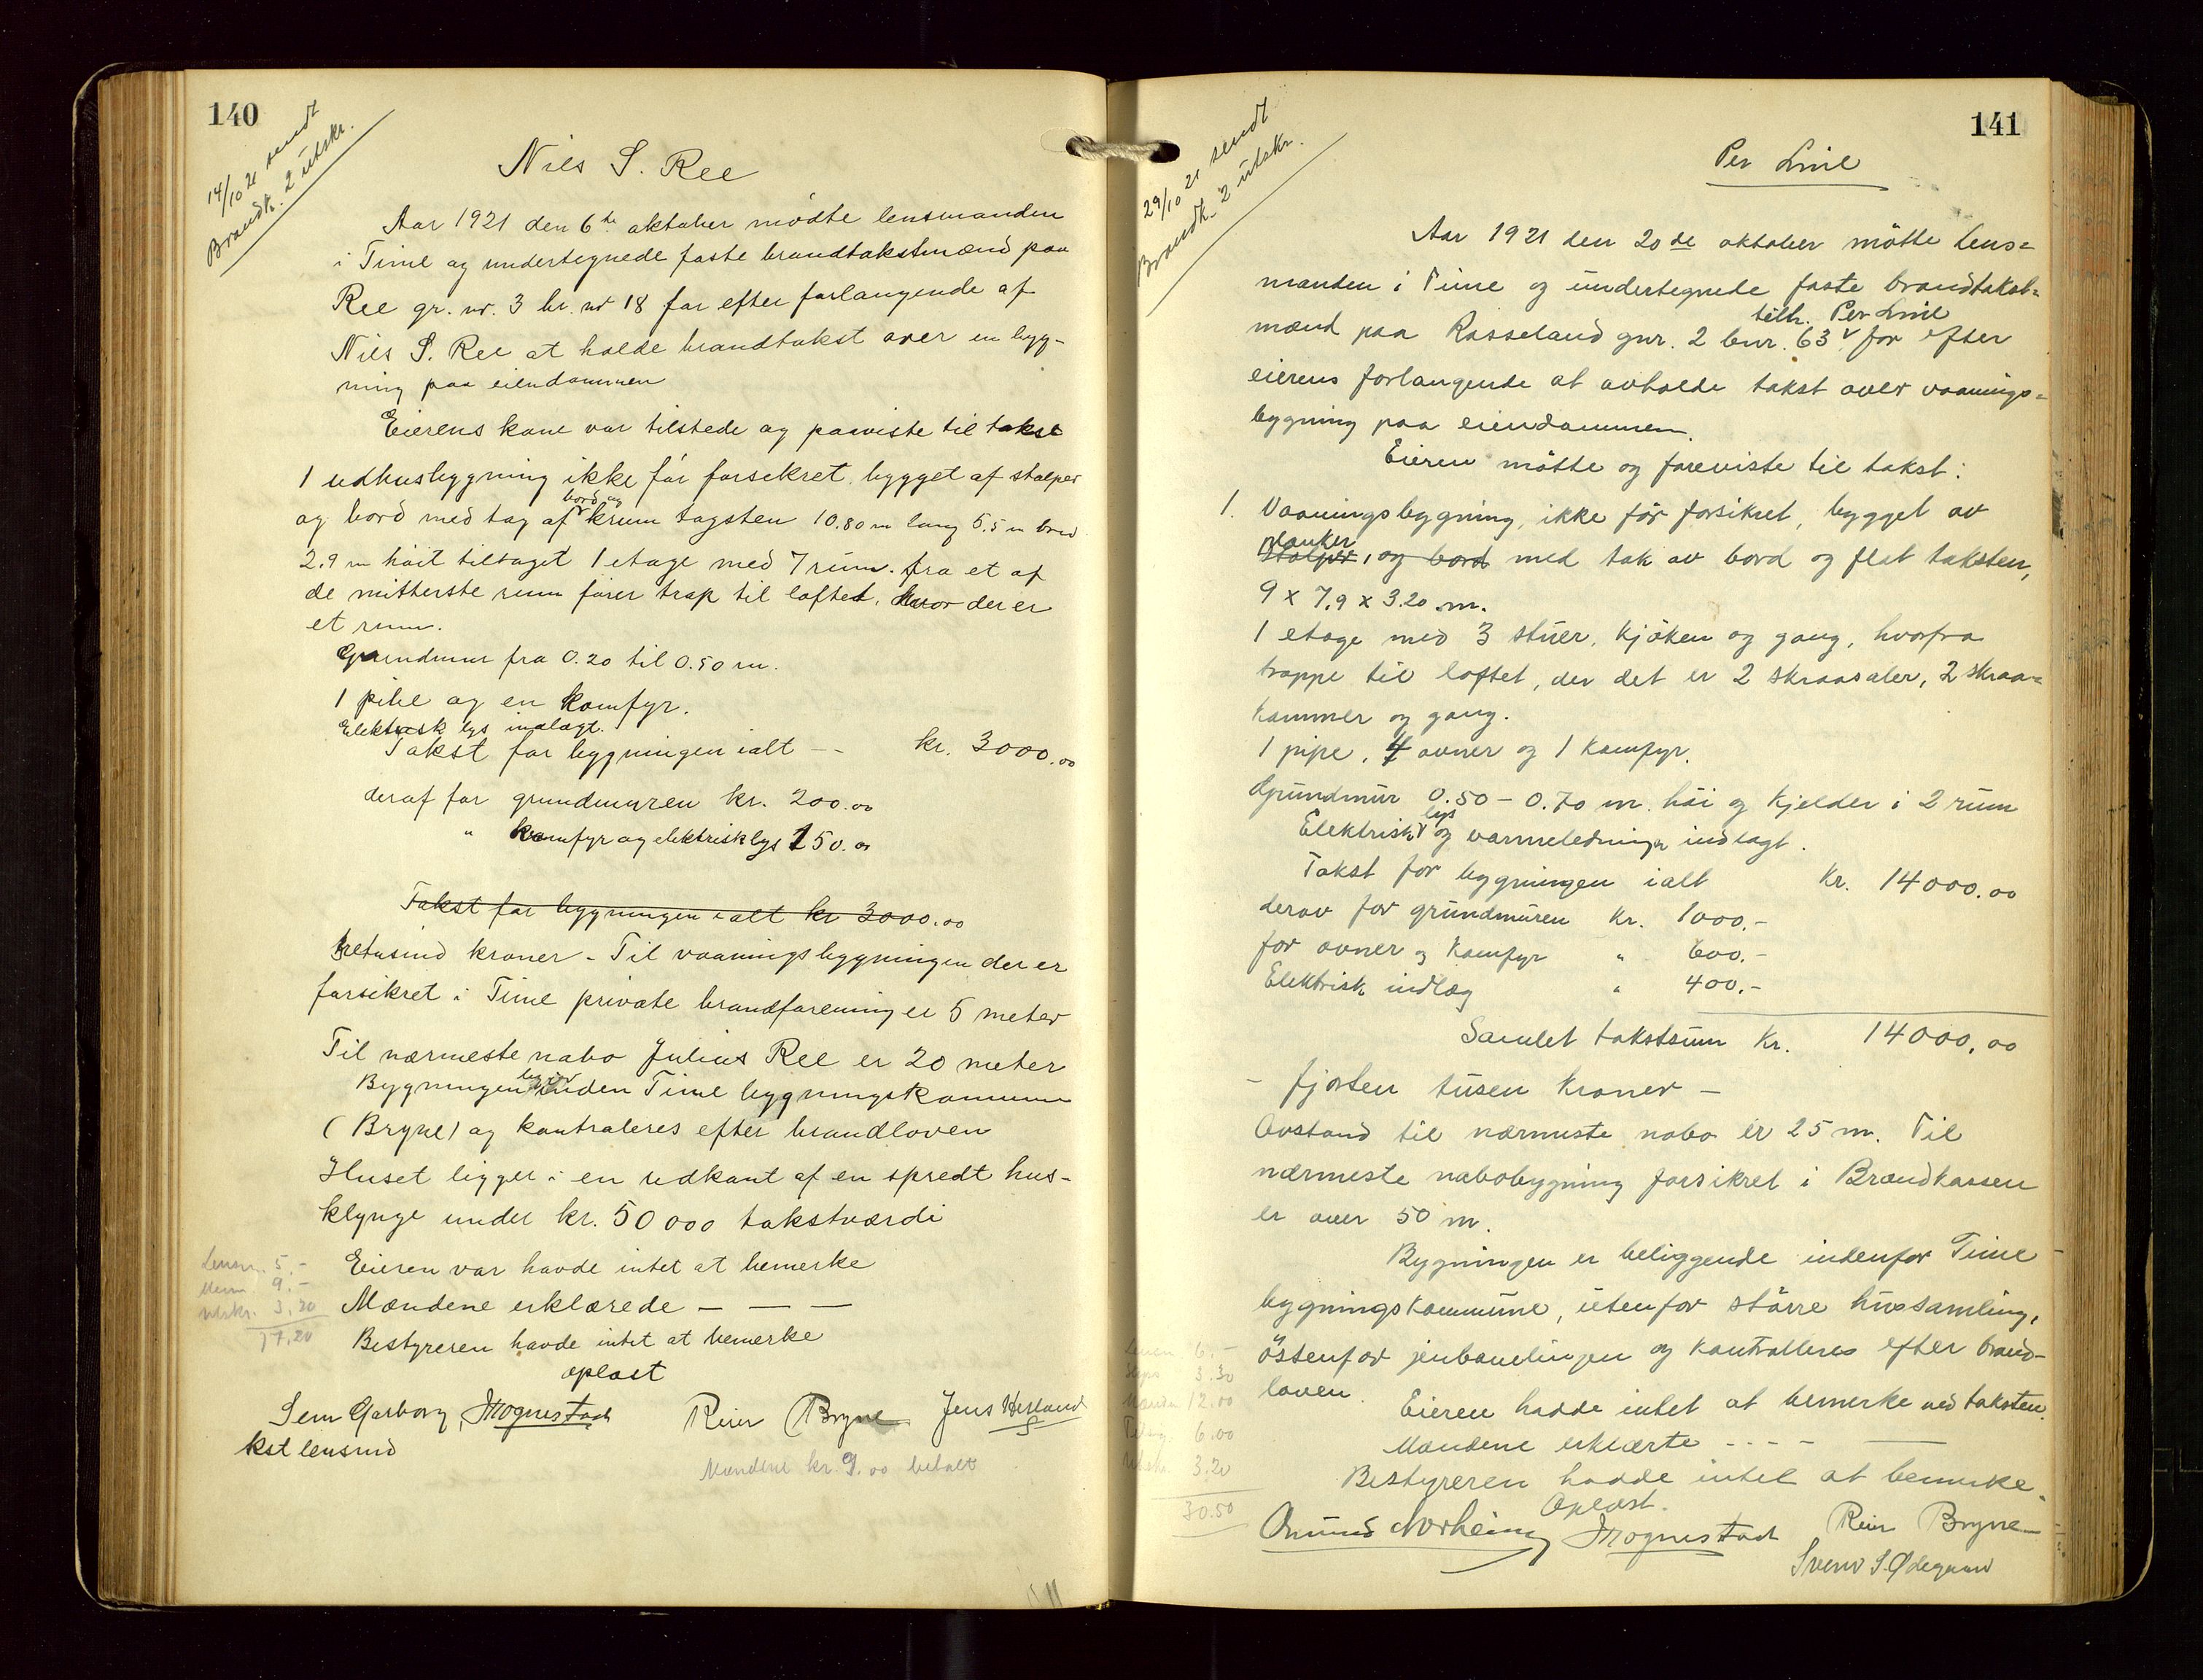 140
14/10 21 sendt
Brandk. 2 utskr.
Nils S. Ree
Aar 1921 den 6te oktober mødte lensmanden
i Time og undertegnede faste brandtakstmænd paa
Ree gr. nr. 3 br. nr 18 for efter forlangende af
Nils S. Ree at holde brandtakst over en byg-
ning paa eiendommen
Eierens kone var tilstede og paaviste til takst
1 udhusbygning ikke før forsekret bygget af stolper
og bord med tag af bord og krum tagsten 10.80 m lang 5.5 m bred
2.9 m høit tiltaget 1 etage med 7 rum. fra et af
de mitterste rum fører trap til loftet, hvor der er
et rum.
Grundmur fra 0.20 til 0.50 m.
1 pibe og en komfyr.
Elektrisk lys indlagt.
Takst for bygningen ialt -- kr. 3000.00
deraf for grundmuren kr. 200.00
" komfyr og elektrisk lys 150.00
Takst for bygningen ialt kr 3000.00
tretusind kroner - Til vaaningsbygningen der er
forsikret i Time private brandforening er 5 meter
Til nærmeste nabo Julius Ree er 20 meter
Bygningen ligger inden Time bygningskommune
(Bryne) og kontroleres efter brandloven
Huset ligger i en udkant af en spredt hus-
klynge under kr. 50 000 takstværdi
Eieren var havde intet at bemerke
Mændene erklærede — — —
Bestyreren havde intet at bemerke
oplæst
Lensm. 5.-
Menn 9.-
Utskr. 3.20
17.20
Sem Garborg Mognestad Reier Bryne Jens Herland
kst lensmd
Mændene kr. 9.00 betalt
141
29/10 21 sendt
Brandk. 2 utskr.
Per Line
Aar 1921 den 20de oktober møtte lens=
manden i Time og undertegnede faste brandtakst=
mænd paa Rosseland gnr. 2 bnr. 63 tilh. Per Line for efter
eierens forlangende at avholde takst over vaanings=
bygning paa eiendommen.
Eieren møtte og foreviste til takst:
1. Vaaningsbygning, ikke før forsikret, bygget av
stolper planker, og bord med tak av bord og flat taksten,
9 x 7,9 x 3.20 m.
1 etage med 3 stuer, kjøken og gang, hvorfra
trappe til loftet, der det er 2 skraasaler, 2 skraa=
kammer og gang.
1 pipe, 4 ovner og 1 komfyr.
Grundmur 0.50 - 0.70 m. høi og kjelder i 2 rum
Elektrisk lys og varmeledninger indlagt.
Takst for bygningen ialt Kr. 14000.00
derav for grundmuren Kr. 1000.-
for ovner og komfyr " 600.-
Elektrisk indlæg " 400.-
Samlet takstsum Kr. 14000,00
- fjorten tusen kroner -
Avstand til nærmeste nabo er 25 m. Til
nærmeste nabobygning forsikret i Brandkassen
er over 50 m.
Bygningen er beliggende indenfor Time
bygningskommune, utenfor større hussamling,
østenfor jernbanelinjen og kontrolleres efter brand-
loven.
Eieren hadde intet at bemerke ved taksten.
Mændene erklærte - - - - ——
Bestyreren hadde intet at bemerke.
Oplæst.
Lensm 6.-
3.30
12.00
6.00
Utskr. 3.20
30.50
Omund Norheim Mognestad Reier Bryne
Svend S. Ødegaard